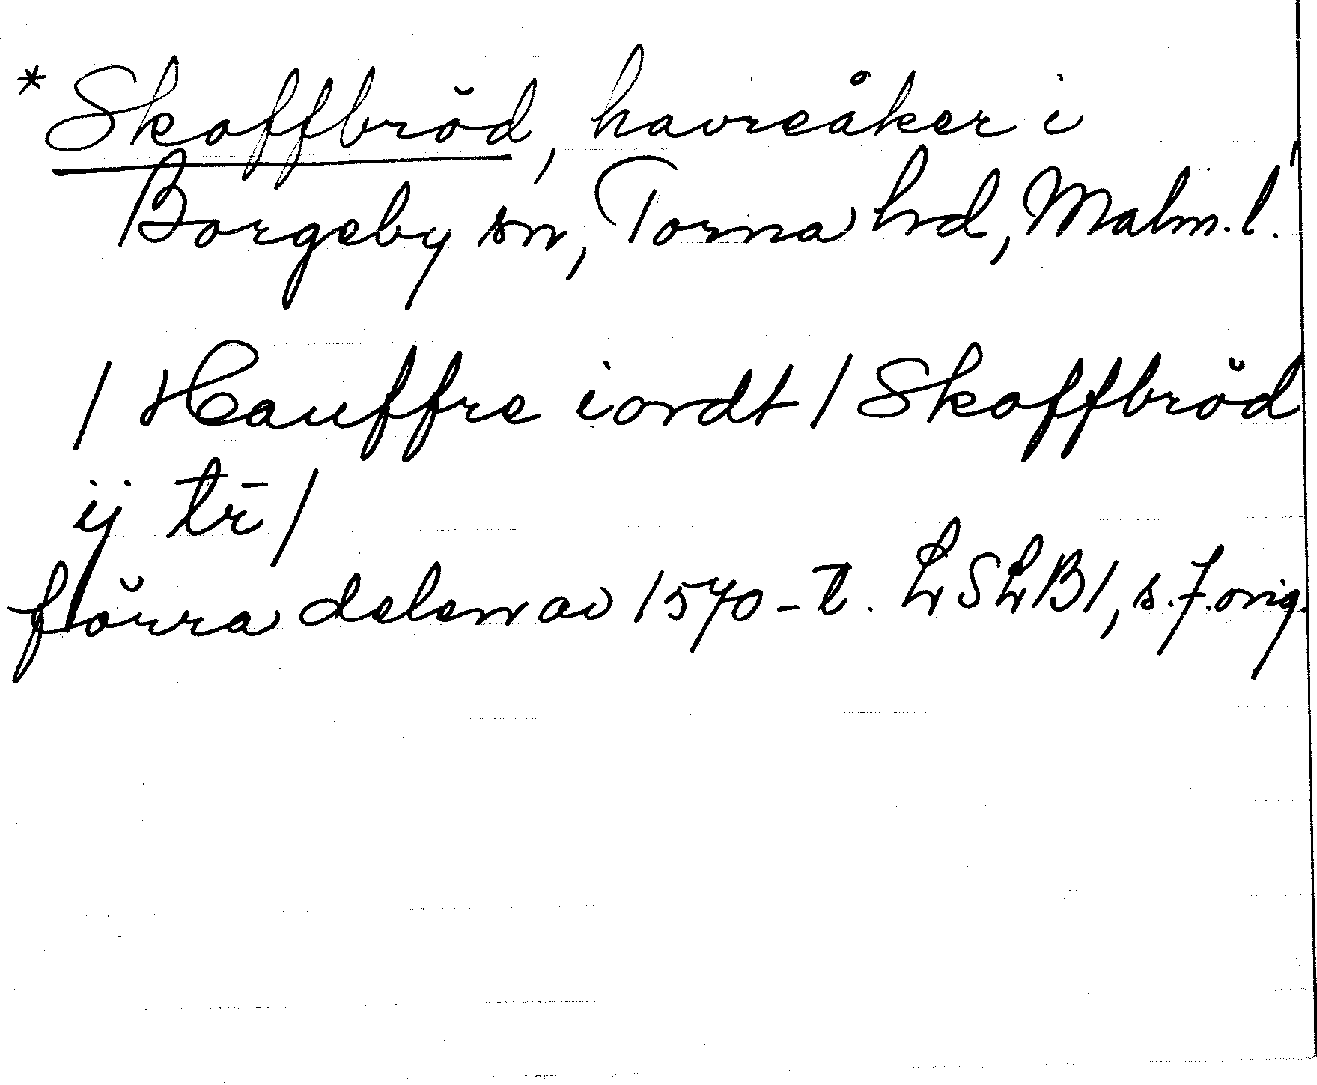 * Skoffbröd, havreåker i
Borgeby sn, Torna hd, Malm. l.
/ Hauffre iordt / Skoffbröd
ij tr̄ /
förra delen av 1570-t. LSLB1, s. 7. orig.